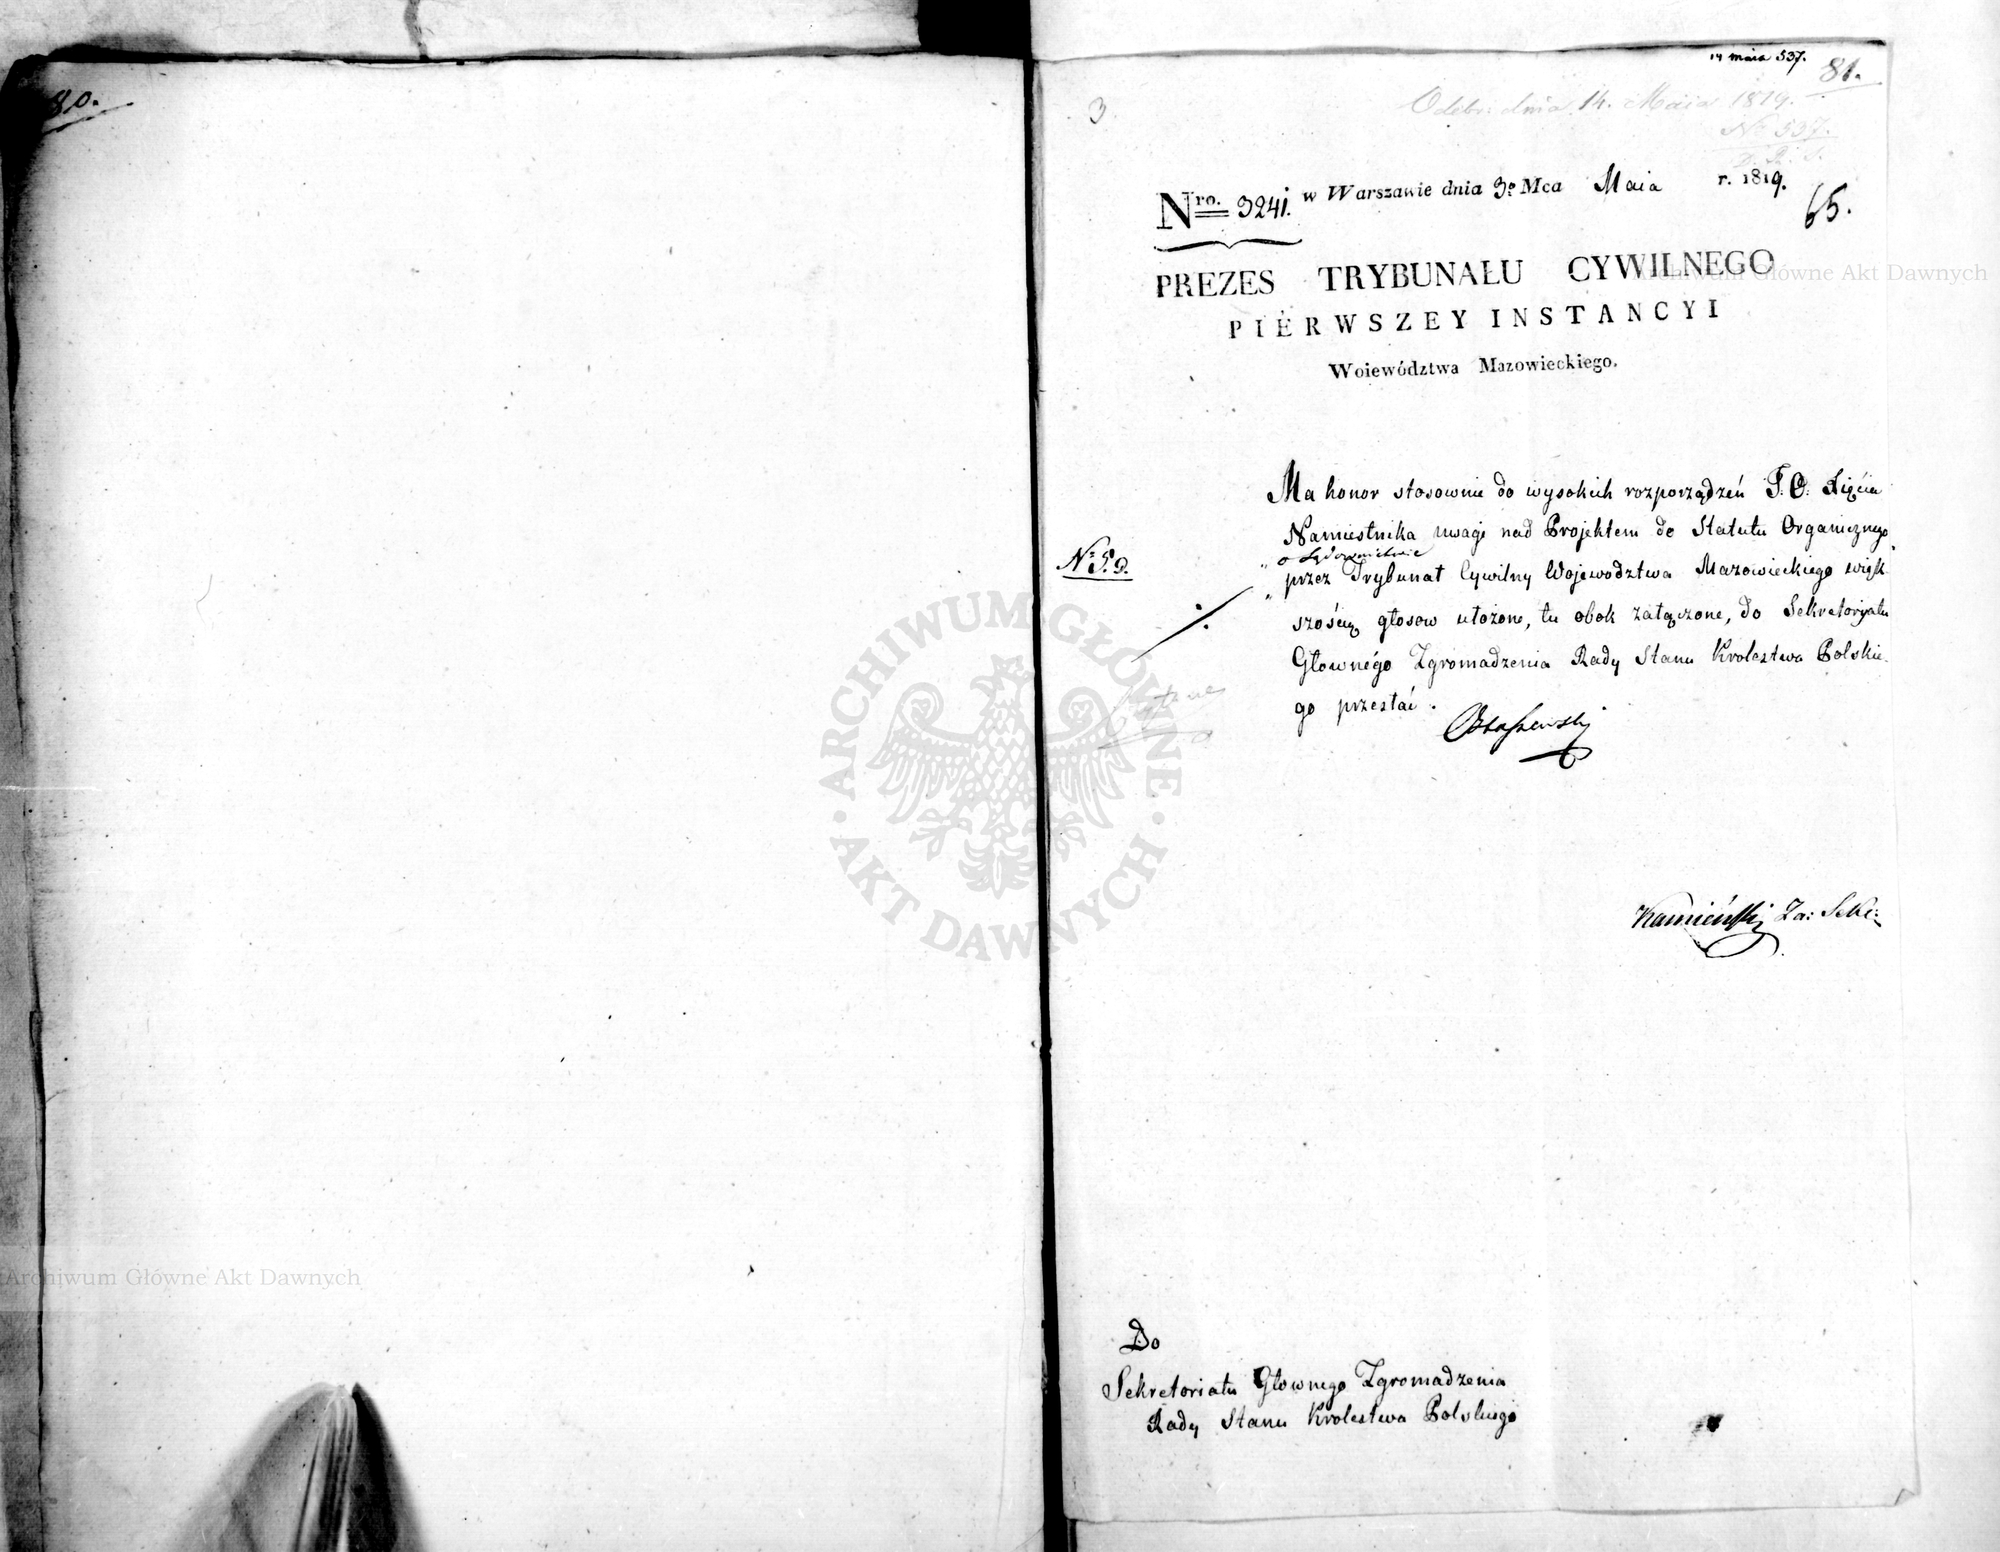 80.
14 maia 537.
81.
3
Odebr: dnia 14. Maia 1819.
No 537.
Nro. 3241. w Warszawie dnia 3o Mca Maia r. 1819.
65.
PREZES TRYBUNAŁU CYWILNEGO
PIERWSZEY INSTANCYI
Woiewództwa Mazowieckiego.
Ma honor stosownie do wysokich rozporządzeń J. O. Xięcia
Namiestnika uwagi nad Projektem do Statutu Organicznego
o Sądownictwie
No 5. d.
przez Trybunał Cywilny Wojewodztwa Mazowieckiego więk-
szością głosow ułożone, tu obok załączone, do Sekretoryatu
Głownégo Zgromadzenia Rady Stanu Krolestwa Polskie-
go przesłać.
Kamieński Za: Sekr:
Do
Sekretoriatu Głownego Zgromadzenia
Rady Stanu Krolestwa Polskiego
Archiwum Główne Akt Dawnych
Archiwum Główne Akt Dawnych
ARCHIWUM GŁÓWNE · AKT DAWNYCH ·